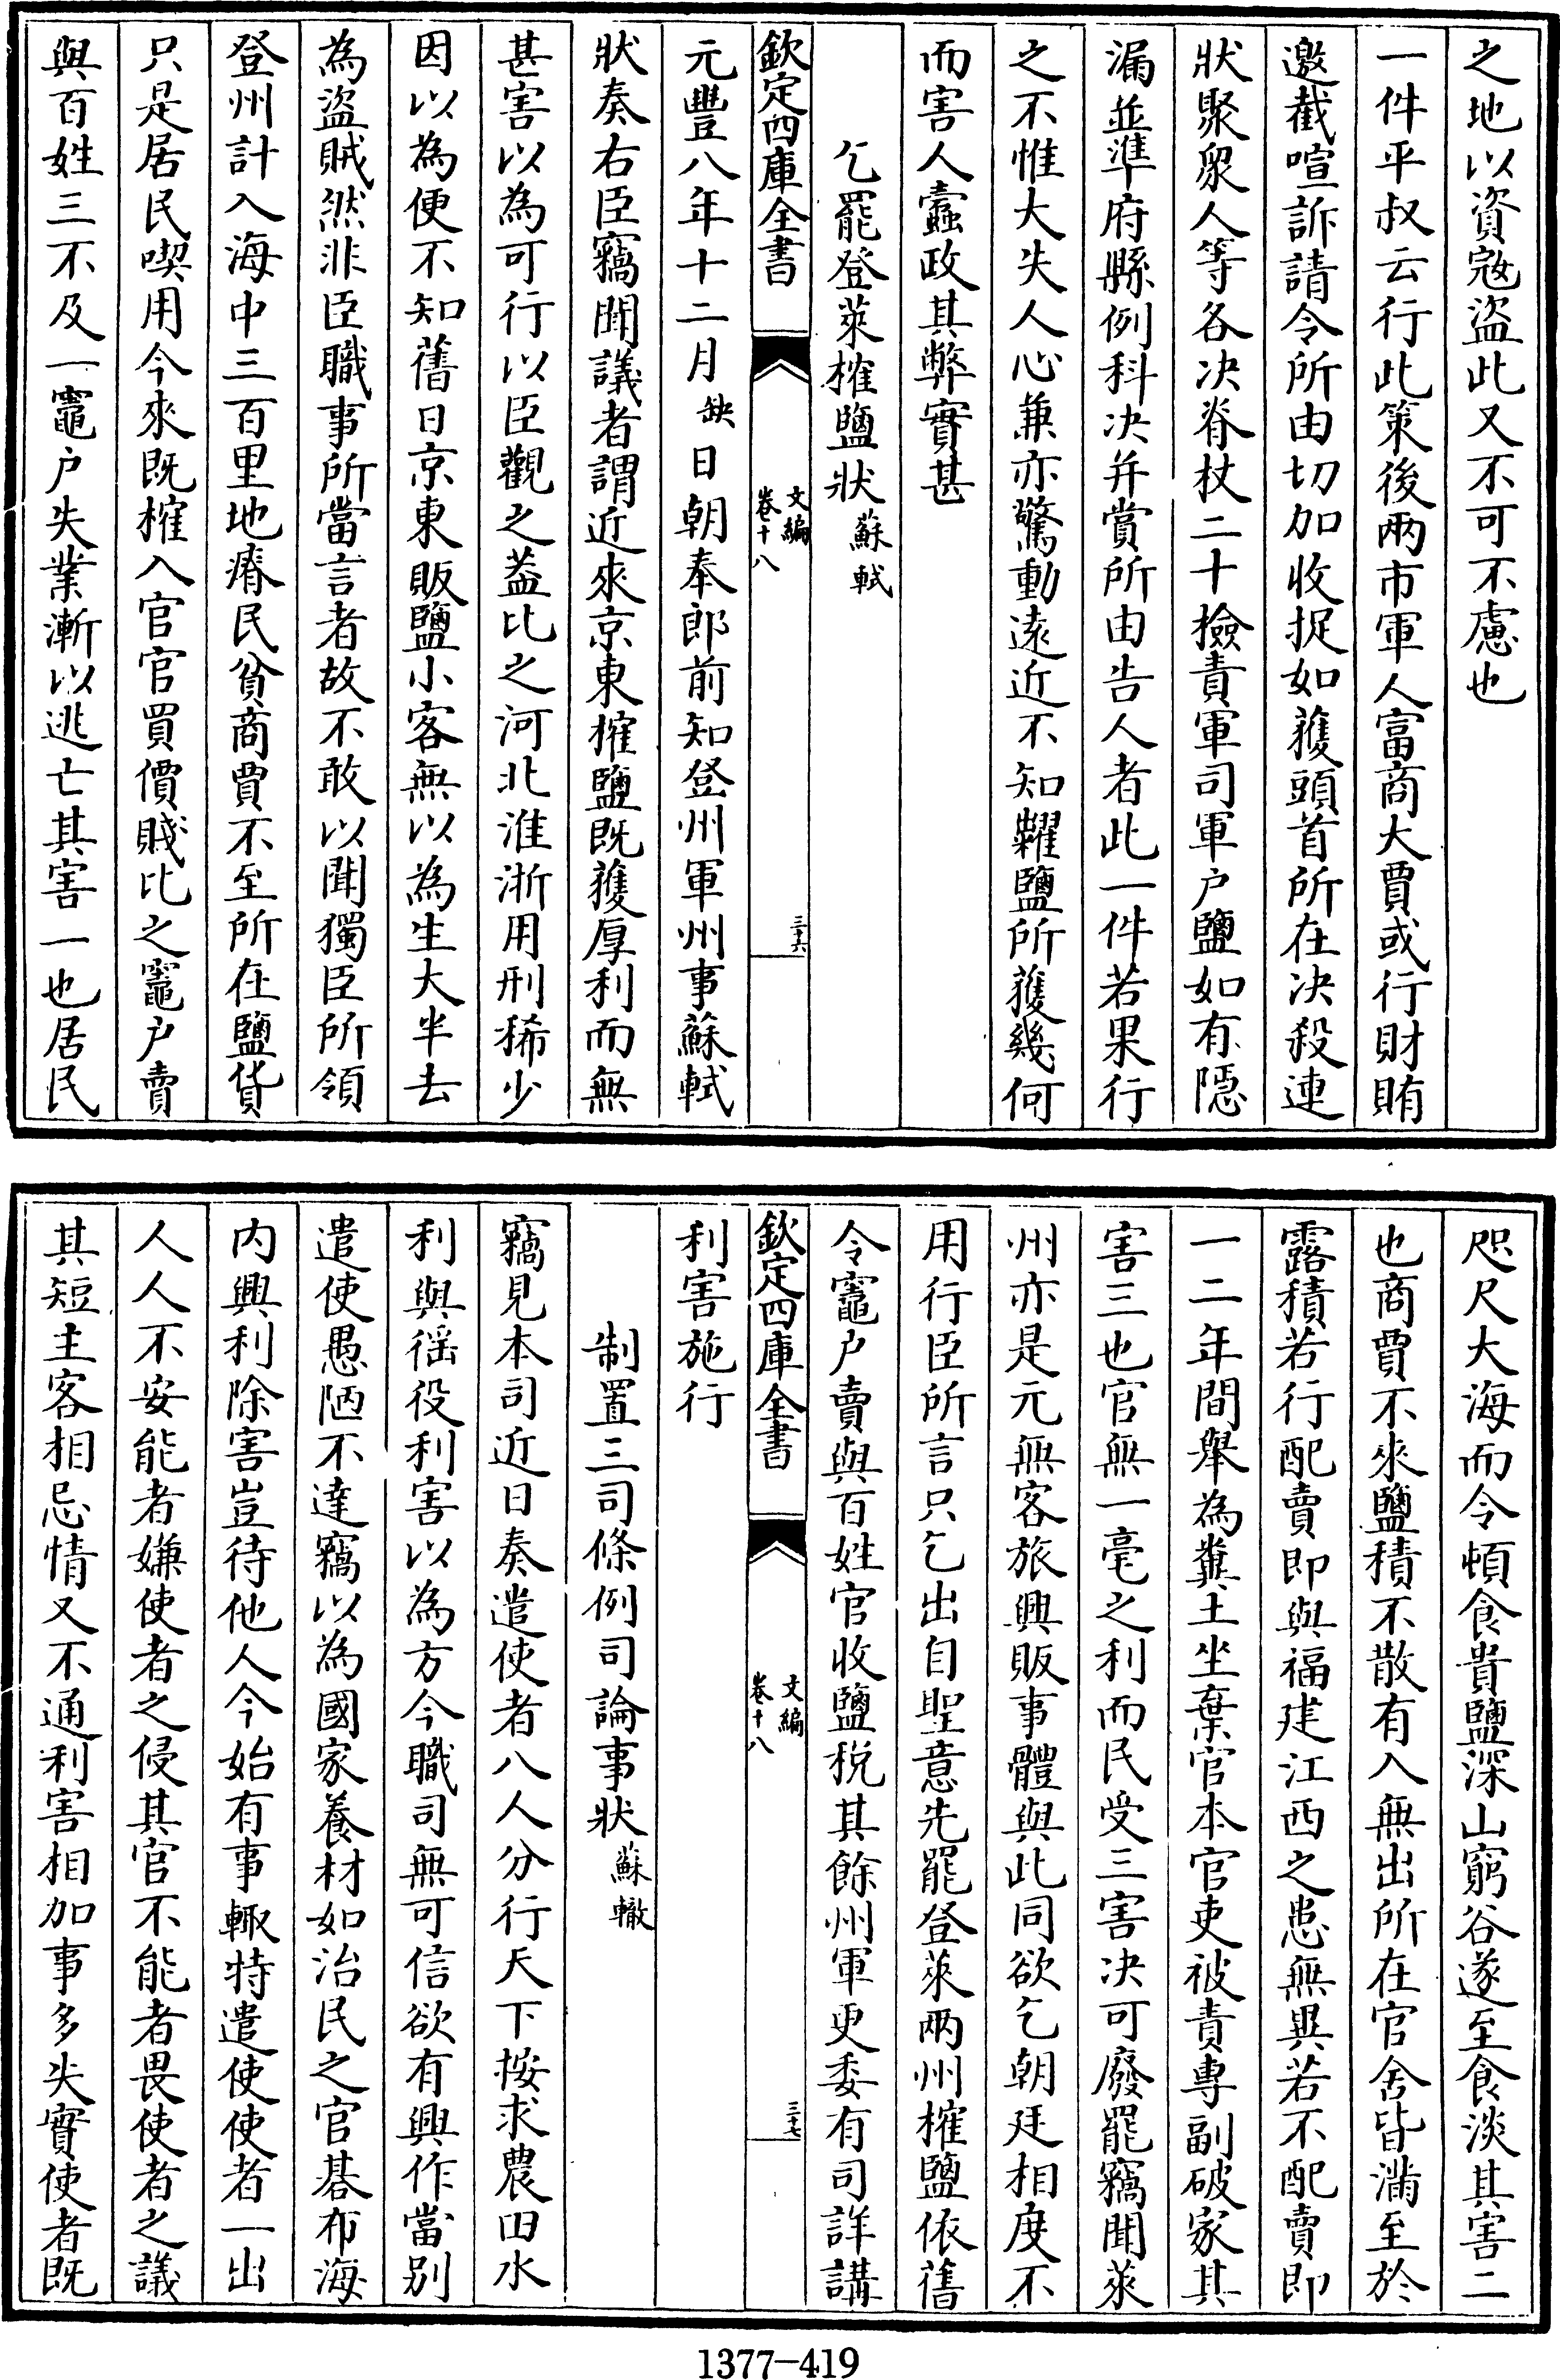 之地以資寇盜此又不可不慮也
一件平叔云行此策後兩市軍人富商大賈或行財賄
邀截喧訴請令所由切加收捉如獲頭首所在決殺連
狀聚衆人等各决脊杖二十檢責軍司軍户鹽如有隱
漏並準府縣例科决并賞所由告人者此一件若果行
之不惟大失人心兼亦驚動遠近不知糶鹽所獲幾何
而害人蠹政其弊實甚
乞罷登萊榷鹽狀蘇軾
欽定四庫全書
文編
卷十八
三十六
元豐八年十二月缺日朝奉郎前知登州軍州事蘇軾
狀奏右臣竊聞議者謂近來京東榷鹽既獲厚利而無
甚害以為可行以臣觀之蓋比之河北淮浙用刑稀少
因以為便不知舊日京東販鹽小客無以為生大半去
為盜賊然非臣職事所當言者故不敢以聞獨臣所領
登州計入海中三百里地瘠民貧商賈不至所在鹽貨
只是居民喫用今來既榷入官官買價賤比之竈户賣
與百姓三不及一竈户失業漸以逃亡其害一也居民
咫尺大海而令頓食貴鹽深山窮谷遂至食淡其害二
也商賈不來鹽積不散有入無出所在官舍皆滿至於
露積若行配賣即與福建江西之患無異若不配賣即
一二年間舉為糞土坐棄官本官吏被責專副破家其
害三也官無一毫之利而民受三害决可廢罷竊聞萊
州亦是元無客旅興販事體與此同欲乞朝廷相度不
用行臣所言只乞出自聖意先罷登萊兩州榷鹽依舊
令竈户賣與百姓官收鹽税其餘州軍更委有司詳講
欽定四庫全書
文編
卷十八
三十七
利害施行
制置三司條例司論事狀蘇轍
竊見本司近日奏遣使者八人分行天下按求農田水
利與徭役利害以為方今職司無可信欲有興作當别
遣使愚陋不達竊以為國家養材如治民之官棊布海
内興利除害豈待他人今始有事輒特遣使使者一出
人人不安能者嫌使者之侵其官不能者畏使者之議
其短主客相忌情又不通利害相加事多失實使者既
1377-419